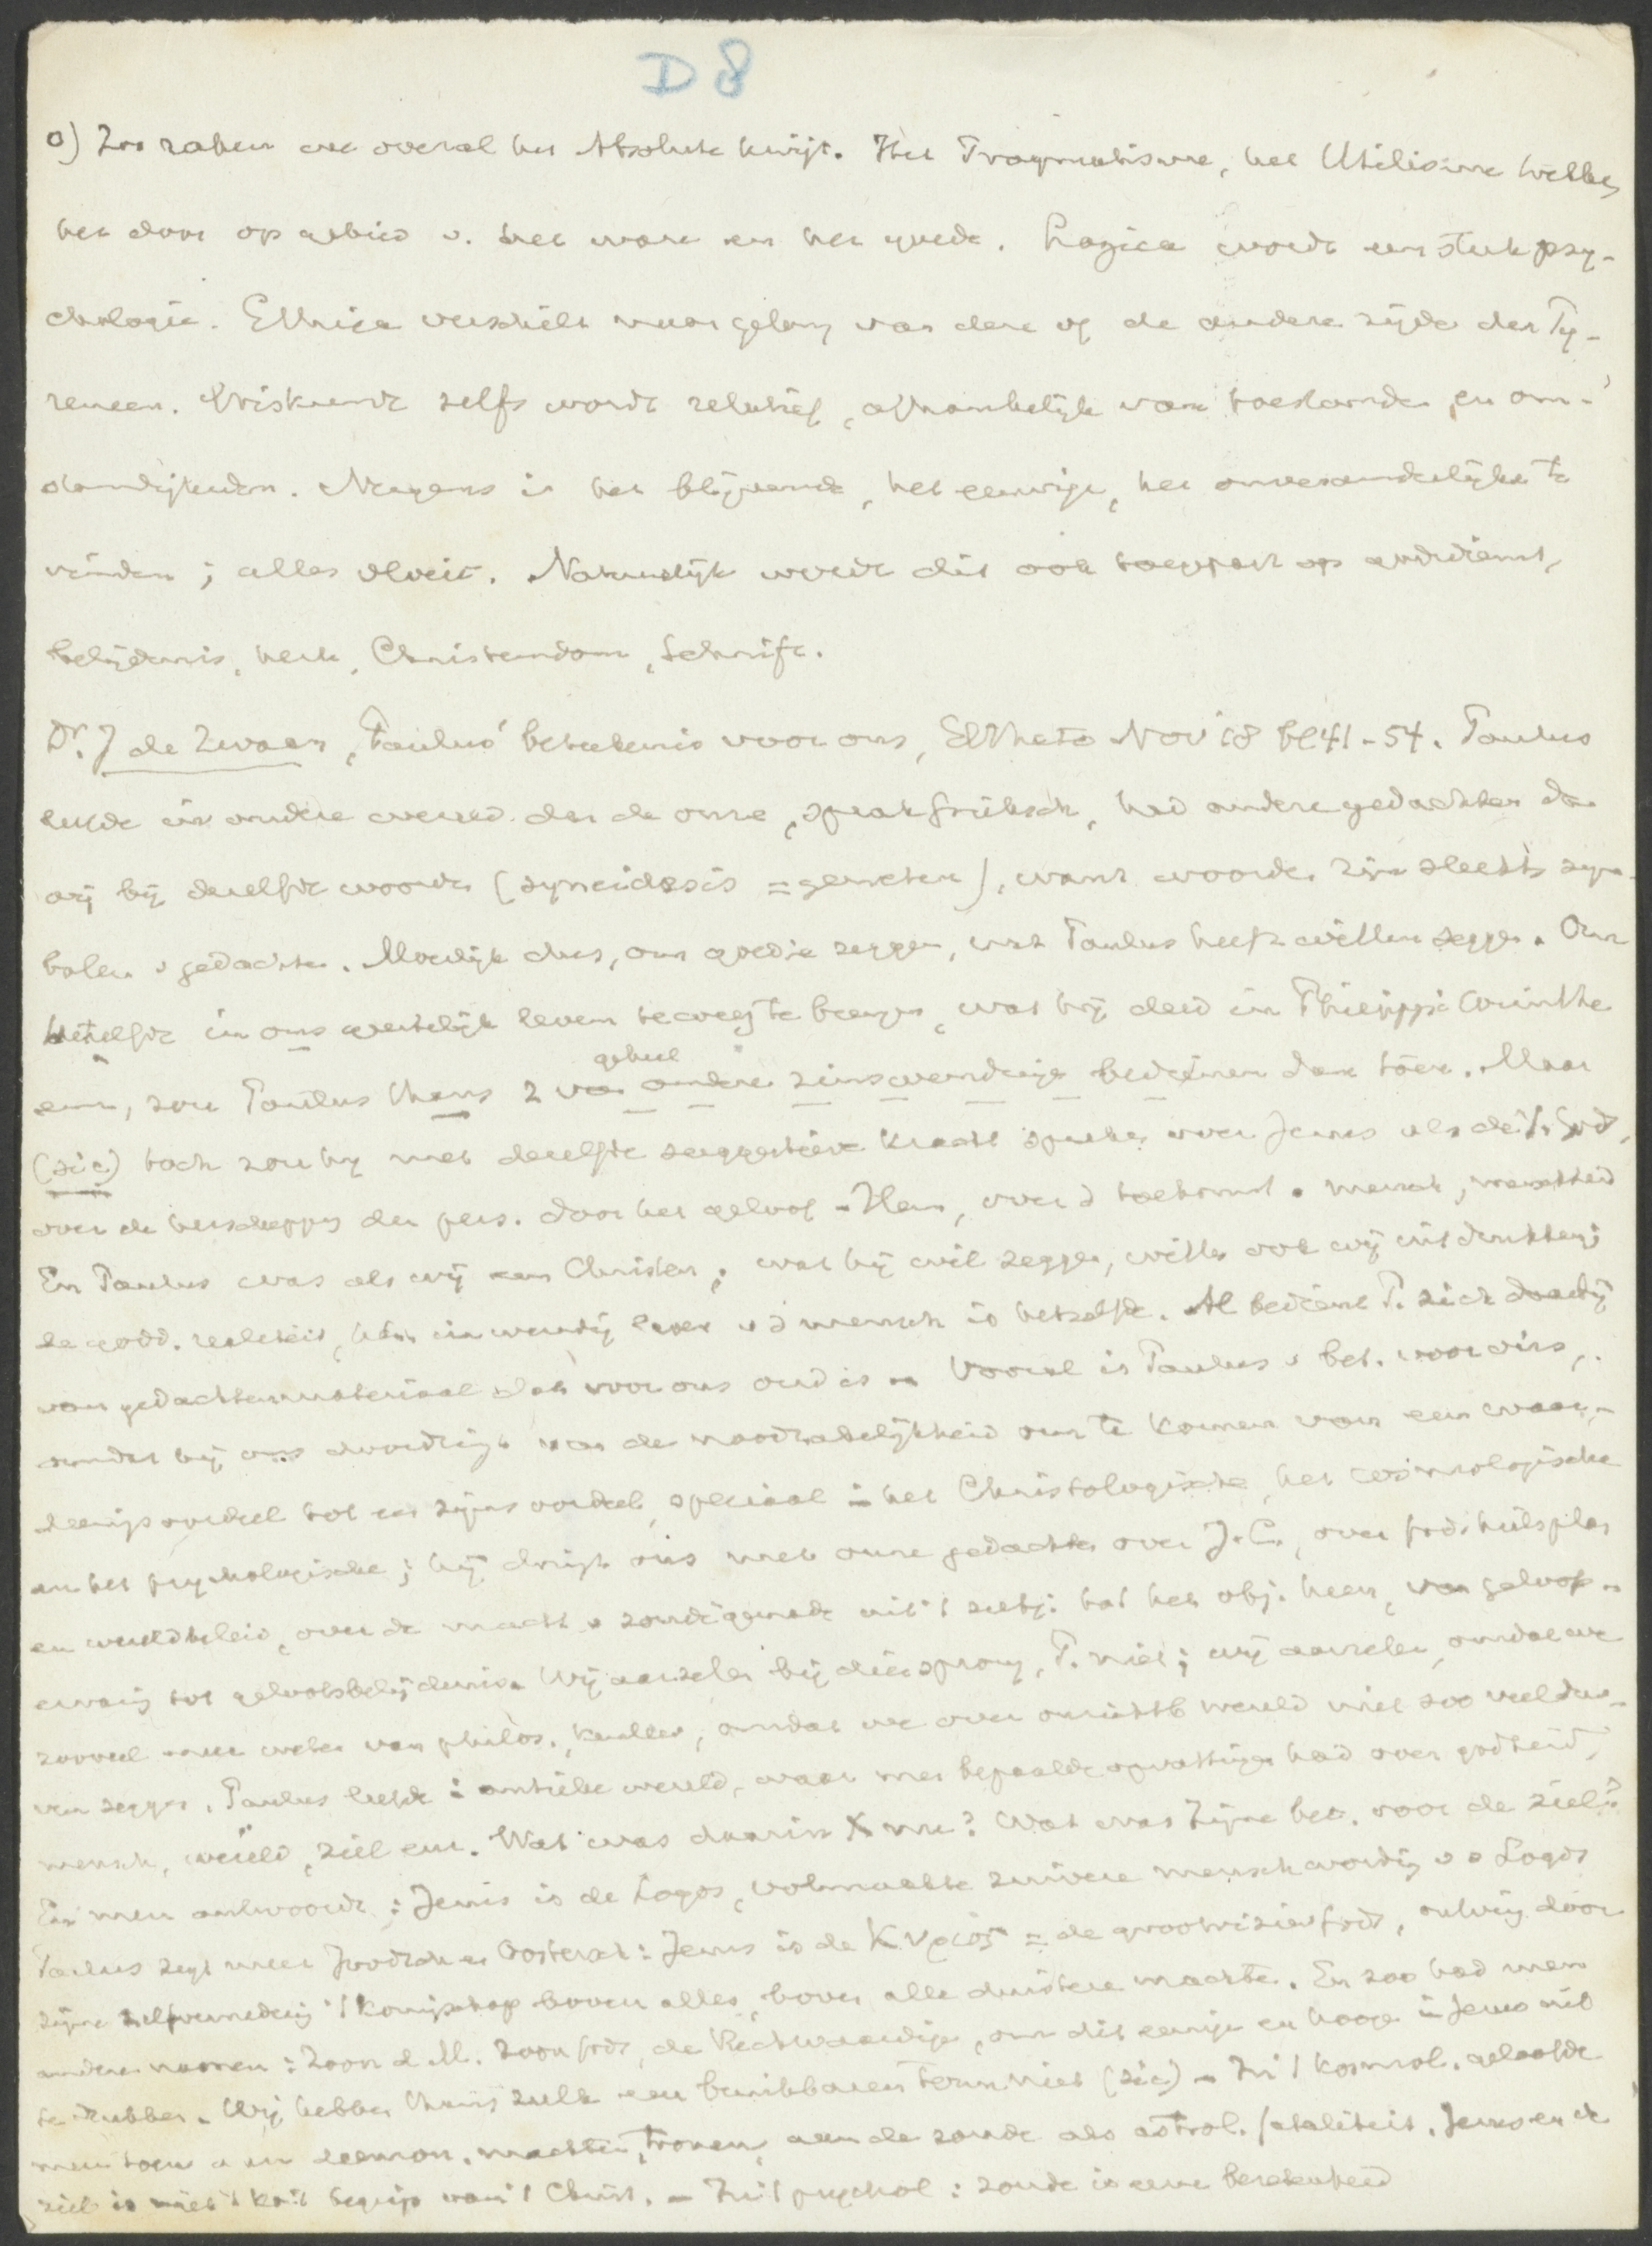 D 8
o) Zoo raken we overal het Absolute kwijt. Het Pragmatisme, het Utilisme trekken
het door op gebied v. het ware en het goede. Logica wordt een stuk psy-
chologie. Ethica verschilt naar gelang van deze of de andere zijde der Py-
reneen. Wiskunde zelfs wordt relatief, afhankelijk van toestanden en om-
standigheden. Nergens is het blijvende, het eeuwige, het onveranderlijke te
vinden; alles vloeit. Natuurlijk wordt dit ook toegepast op godsdienst,
belijdenis, kerk, Christendom, Schrift.
Dr. J de Zwaan, Paulus' beteekenis voor ons, Eltheto Nov '18 bl 41-54. Paulus
leefde in andere wereld dan de onze, sprak Grieksch, had andere gedachten dan
wij bij dezelfde woorden (syneidesis = geweten), want woorden zijn slechts sym-
bolen v gedachten. Moeilijk dus, om goed te zeggen, wat Paulus heeft willen zeggen. Om
hetzelfde in ons geestelijk leven teweeg te brengen, wat hij deed in Philippi Corinthe
enz, zou Paulus thans z van geheel andere zinswendingen bedienen dan toen. Maar
(sic) toch zou hij met dezelfde suggestieve kracht spreken over Jezus als de Z. Gods,
over de herschepping der pers. door het geloof in Hem, over d toekomst v mensch, menschheid
En Paulus was als wij een Christen; wat hij wil zeggen, willen ook wij uitdrukken;
de godd. realiteit, het inwendig leven v d mensch is hetzelfde. Al bedient P. zich daarbij
van gedachtenmateriaal dat voor ons oud is. Vooral is Paulus v bet. voor ons,
omdat hij ons doordringt van de noodzakelijkheid om te komen van een waar-
deeringsoordeel tot een zijnsoordeel, speciaal in het Christologische, het cosmologische
en het psychologische; hij dringt ons met onze gedachten over J. C., over Gods heilsplan
en wereldbeleid, over de macht v zonde genade uit 't subj. tot het obj. heen, van geloofs-
ervaring tot geloofsbelijdenis. Wij aarzelen bij dien sprong, P. niet; wij aarzelen, omdat we
zooveel meer weten van philos., kenleer, omdat we over onzichtb wereld niet zoo veel dur-
ven zeggen. Paulus leefde in antieke wereld, waar men bepaalde opvattingen had over godheid,
mensch, wereld, ziel enz. Wat was daarin X nu? Wat was Zijne bet. voor de ziel?
En men antwoordt: Jezus is de Logos, volmaakte zuivere menschwording v d Logos
Paulus zegt meer Joodsch en Oostersch: Jezus is de Κυριος = de grootvizier Gods, ontving door
zijne zelfvernedering 't koningschap boven alles, boven alle duistere machten. En zoo had men
andere namen: Zoon d. M. Zoon Gods, de Rechtvaardige, om dit eenige en hooge in Jezus uit
te drukken. Wij hebben thans zulk een bruikbaren term niet (sic). In 't kosmol. geloofde
men toen aan daemon. machten, tronen, aan de zonde als astrol. fataliteit. Jezus en de
ziel is niet 't begrip van 't Christ. - In 't psychol: zonde is eene bezetenheid